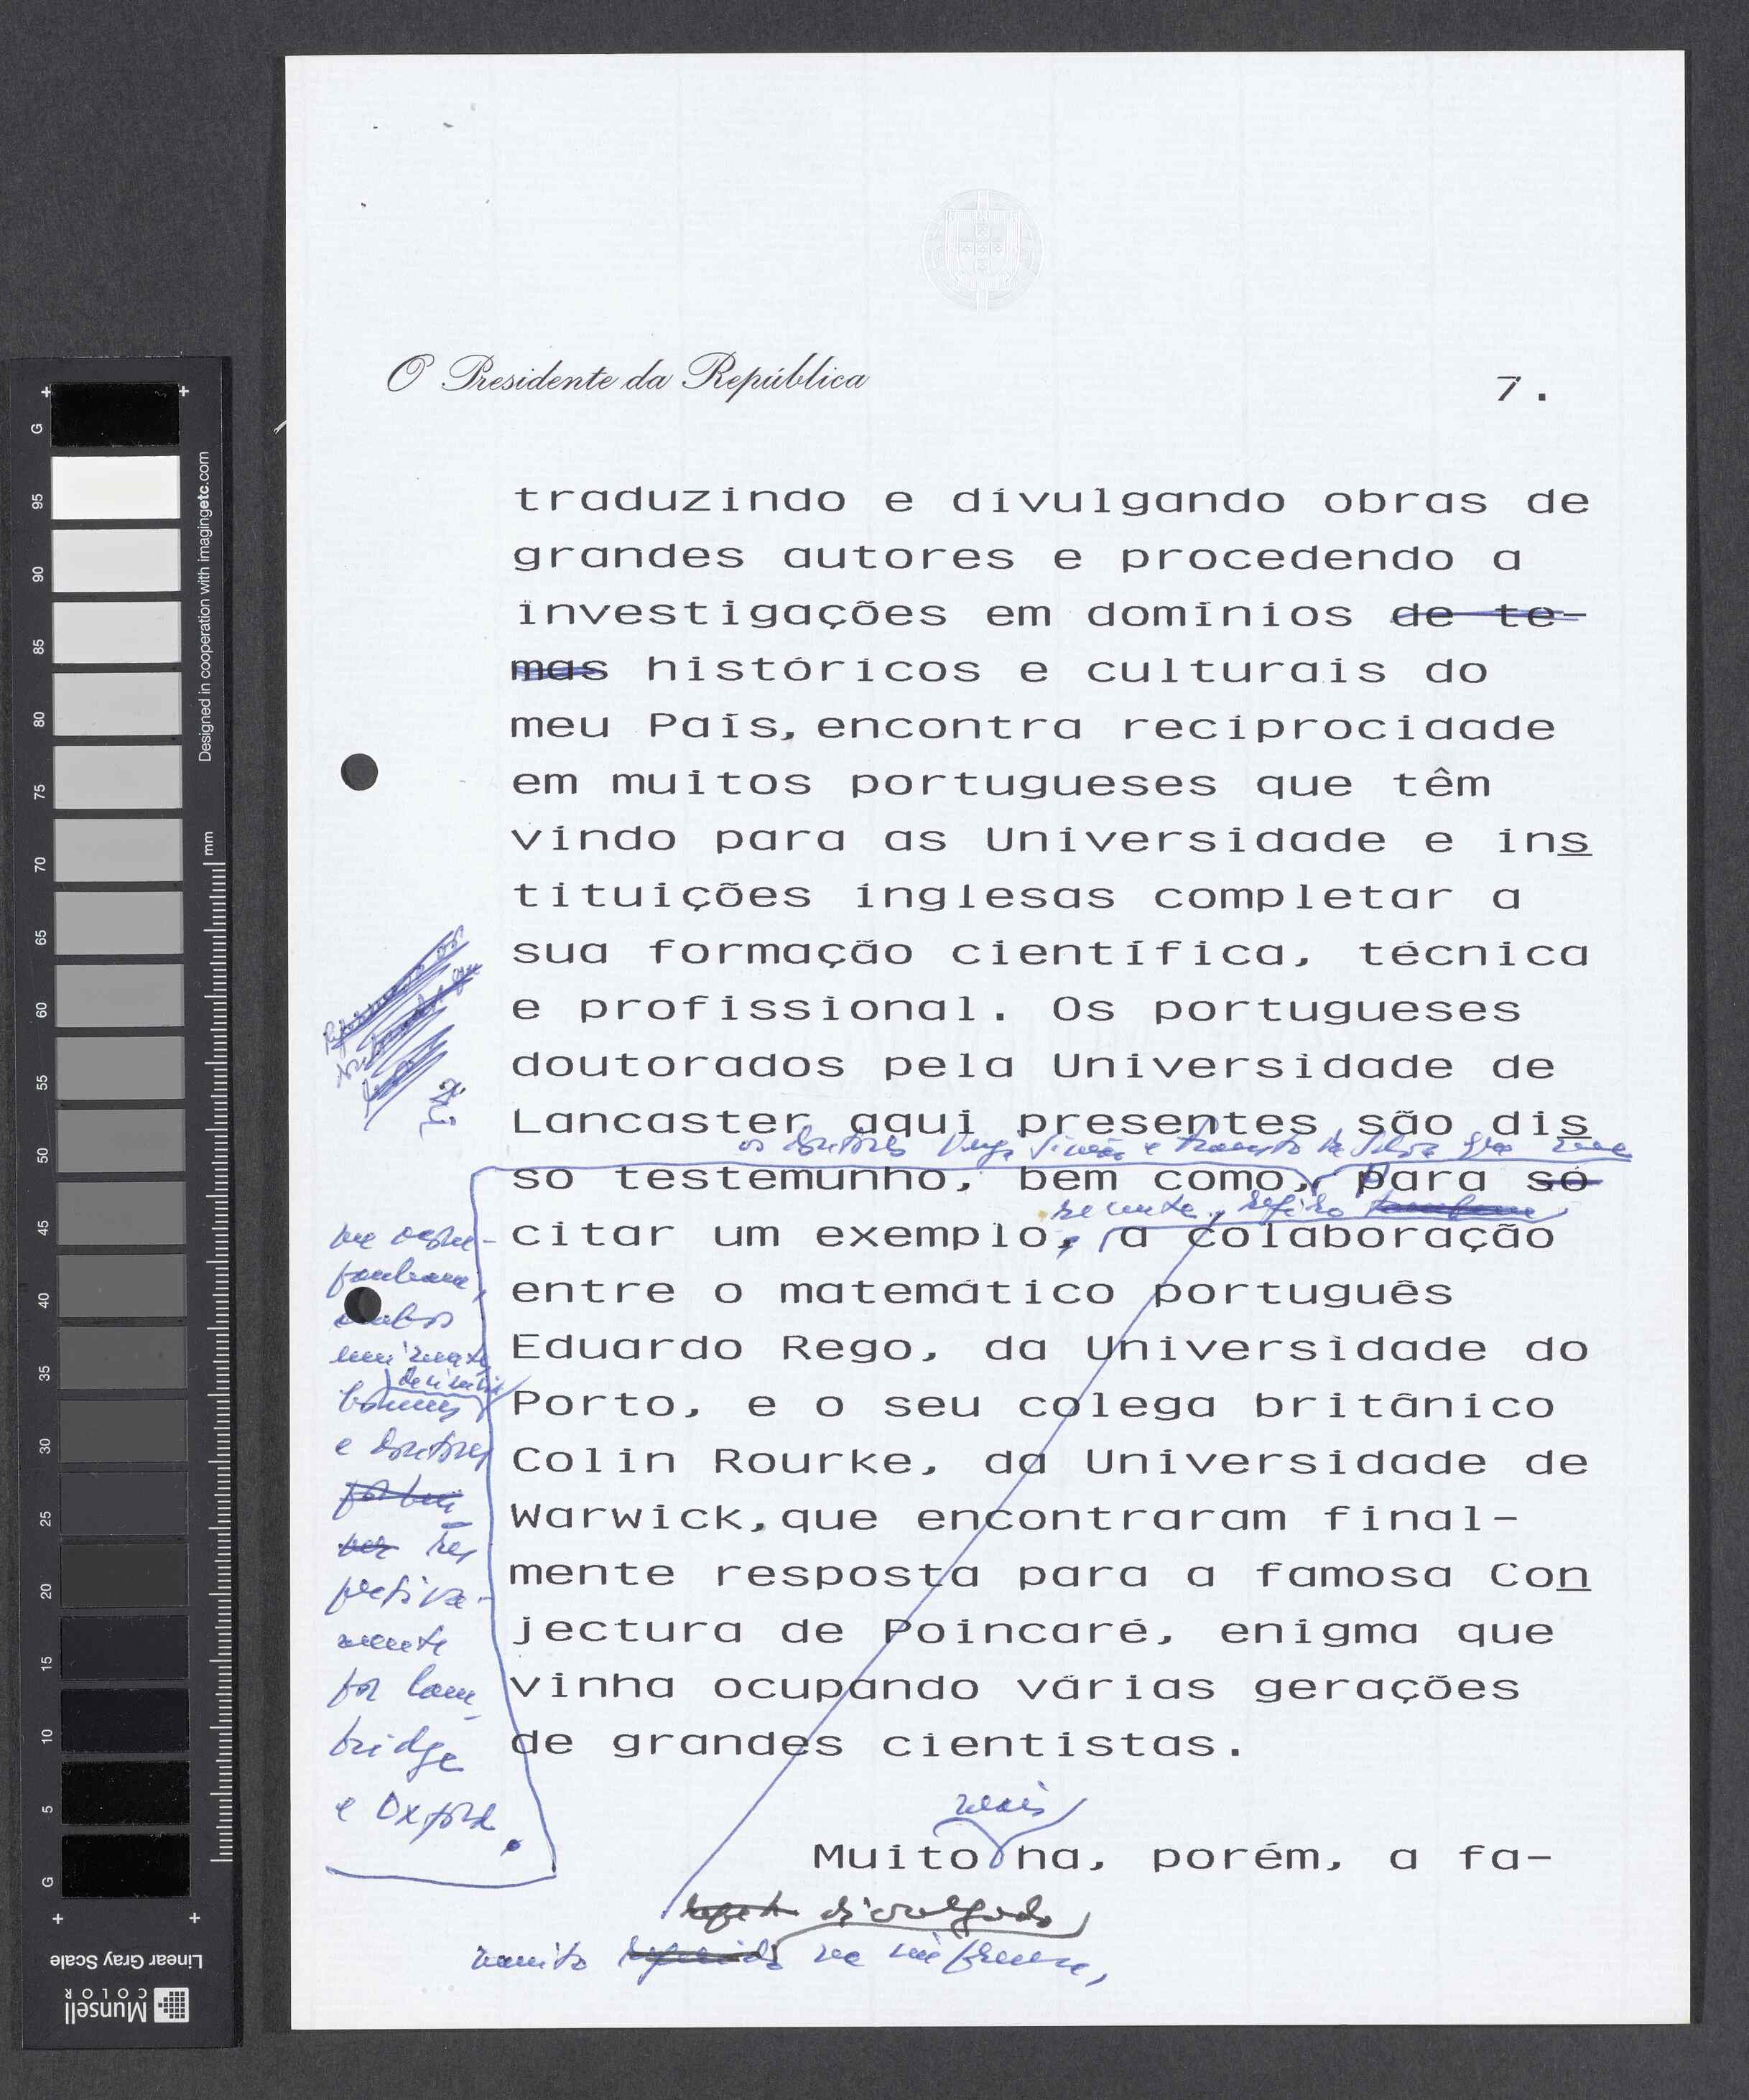 O Presidente da República
7.
traduzindo e divulgando obras de
grandes autores e procedendo a
investigações em domínios de te-
mas históricos e culturais do
meu País, encontra reciprocidade
em muitos portugueses que têm
vindo para as Universidade e ins
tituições inglesas completar a
sua formação científica, técnica
e profissional. Os portugueses
doutorados pela Universidade de
Lancaster aqui presentes são dis
os doutores Veiga Simão e da Silva que
so testemunho, bem como, para só
recente, refiro
citar um exemplo, a colaboração
entre o matemático português
Eduardo Rego, da Universidade do
Porto, e o seu colega britânico
Colin Rourke, da Universidade de
Warwick, que encontraram final-
mente resposta para a famosa Con
jectura de Poincaré, enigma que
vinha ocupando várias gerações
de grandes cientistas.
me acom-
panham,
ambos
eminentes
homens
e doutores
res
petiva-
mente
por Cam
bridge
e Oxford.
mais
Muito há, porém, a fa-
divulgado
muito na imprensa,
G
95
90
85
80
75
70
65
60
55
50
45
40
35
30
25
20
15
10
5
G
mm
Designed in cooperation with imagingetc.com
Linear Gray Scale
Munsell
COLOR